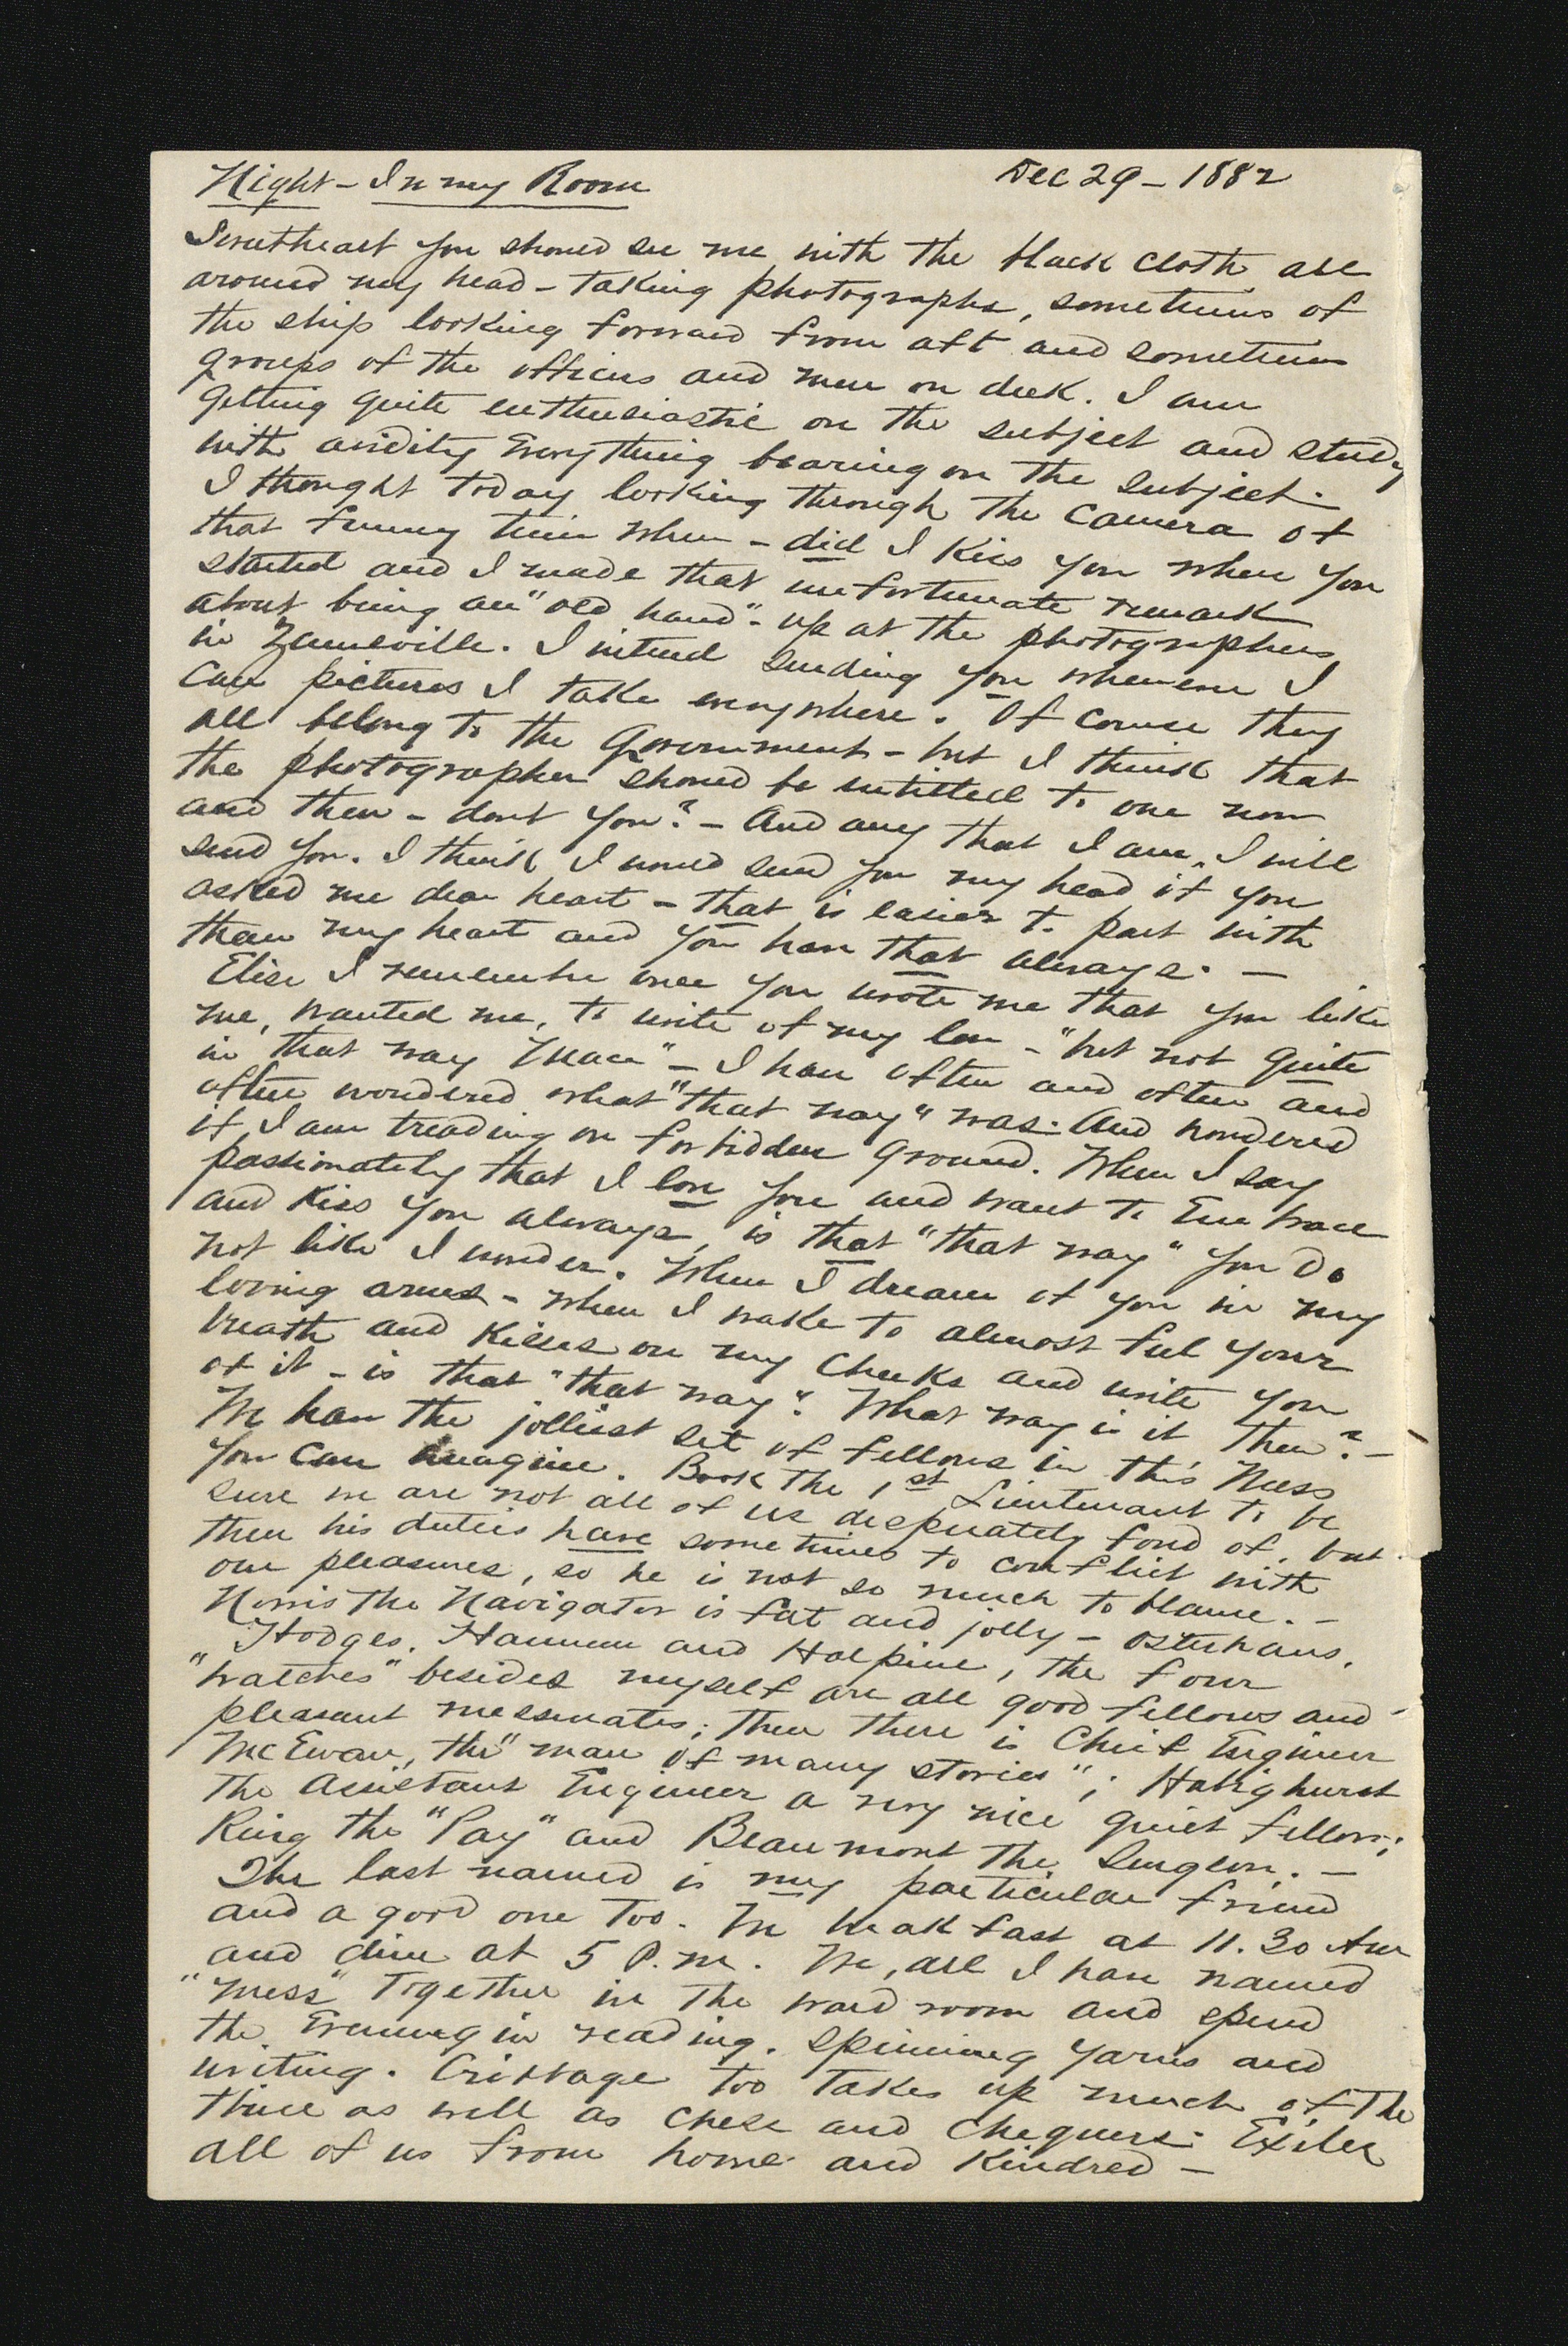 Night - In my Room Dec 29 - 1882
Sweetheart you should see me with the black cloth all
around my head - taking photographs, sometimes of
the ship looking forward from aft and sometimes
groups of the officers and men on deck. I am
getting quite enthusiastic on the subject and study
with avidity everything bearing on the subject.
I thought today looking through the camera of
that funny time when - did I kiss you when you
started and I made that unfortunate remark
about being an "old hand" - up at the photographers
in Zanesville. I intend sending you whenever I
can pictures I take everywhere. Of course they
all belong to the Government - but I think that
the photographer should be entitled to one now
and then - dont you? - And any that I am, I will
send you. I think I would send you my head if you
asked me dear heart - that is easier to part with
than my heart and you have that always. -
Elise I remember once you wrote me that you like
me, wanted me, to write of my love - "but not quite
in that way " - I have often and often and
often wondered what "that way" was. And wondered
if I am treading on forbidden ground. When I say
passionately that I love you and want to Embrace
and kiss you always, is that "that way" you do
not like I wonder. When I dream of you in my
loving arms - when I wake to almost feel your
breath and kisses on my cheeks and write you
of it - is that "that way". What way is it then? -
We have the jolliest set of fellows in this Mess
you can imagine. Book the 1st Lieutenant to be
sure we are not all of us desperately fond of, but
then his duties have sometimes to conflict with
our pleasures, so he is not so much to blame. -
Norris the Navigator is fat and jolly - Osterhaus,
Hodges, Hannum and Halpine, the four
"watches" besides myself are all good fellows and
pleasant messmates; then there is Chief Engineer
McEwan, the "man of many stories"; Habighurst
the Assistant Engineer a very nice quiet fellow;
Ring the "Pay" and Beaumont the Surgeon. -
The last named is my particular friend
and a good one too. We breakfast at 11.30 Am
and dine at 5 P.m. We, all I have named
"mess" together in the ward room and spend
the Evening in reading. Spinning yarns and
writing. Cribbage too takes up much of the
time as well as chess and chequers. Exiles
all of us from home and kindred -